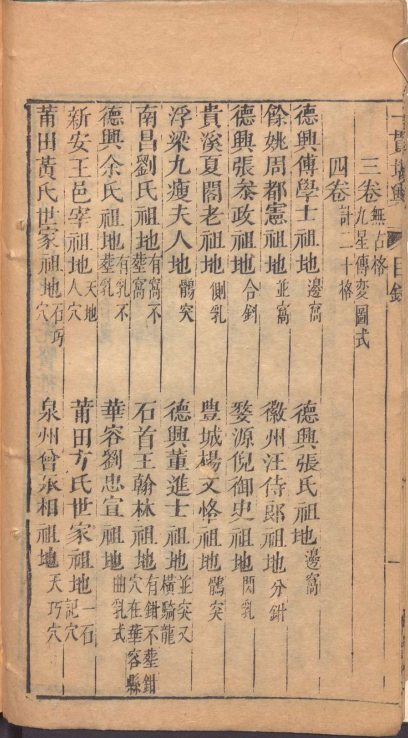 一貫堪輿 目錄
三卷 無占格 九星傳変圖式
四卷 計二十格
德興傅學士祖地 邊窩
德興張氏祖地 邊窩
餘姚周都憲祖地 並窩
徽州汪侍郎祖地 分鉗
德興張叅政祖地 合鉗
婺源倪御史祖地 閃乳
貴溪夏閣老祖地 側乳
豊城楊文恪祖地 鶻突
浮梁九瘦夫人地 鶻突
德興董進士祖地 並突又橫騎龍
南昌劉氏祖地 有窩不塟窩
石首王翰林祖地 有鉗不塟鉗穴在華容縣
德興余氏祖地 有乳不塟乳
華容劉忠宣祖地 曲乳式
新安王邑宰祖地 天地人穴
莆田方氏世家祖地 一石記穴
莆田黃氏世家祖地 石巧穴
泉州曾丞相祖地 天巧穴